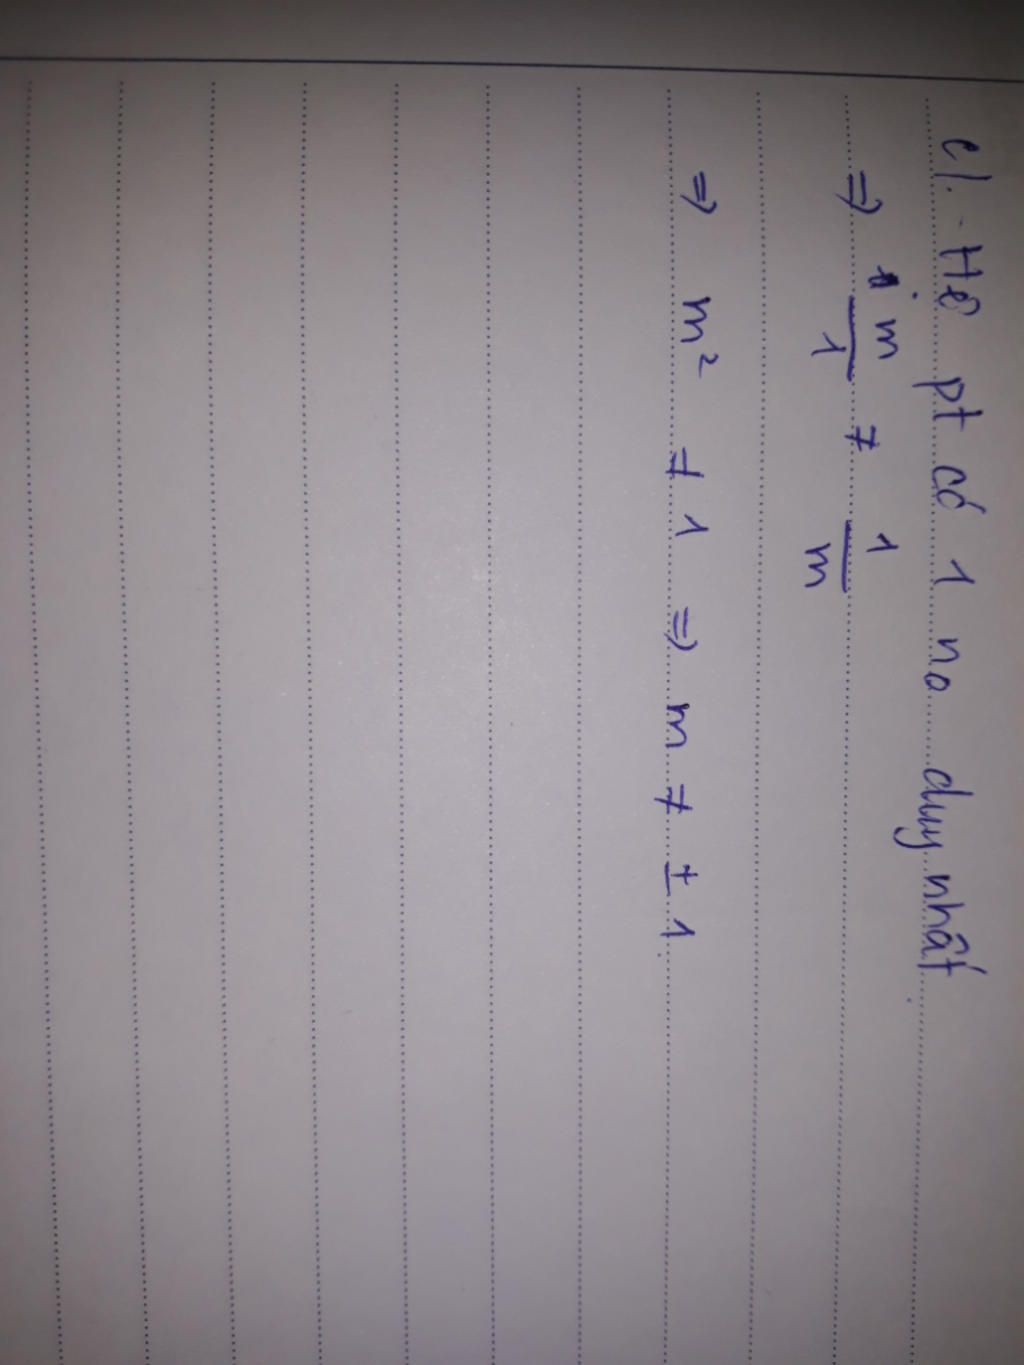 c/. Hệ pt có 1 no duy nhất.
⇒ m/1 ≠ 1/m
⇒ m² ≠ 1 ⇒ m ≠ ± 1.